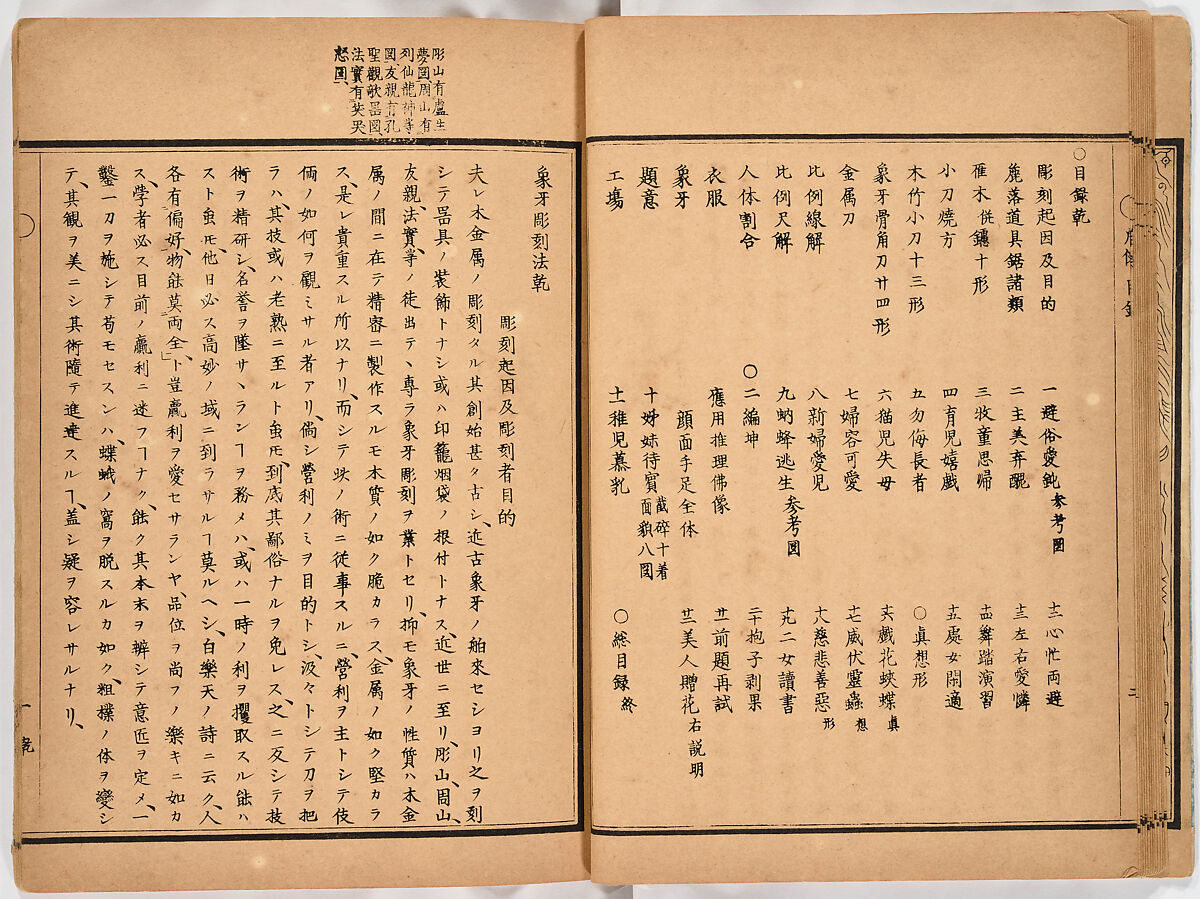 ○目録乾
彫刻起因及目的
麁落道具鋸諸類
雁木倂鑢十形
小刀燒方
木竹小刀十三形
象牙骨角刀廿四形
金属刀
比例線解
比例尺解
人体割合
衣服
象牙
題意
工塲
一避俗愛鈍 参考圖
二主美弃醜
三牧童思帰
四育児嬉戯
五勿侮長者
六猫児失母
七婦容可愛
八新婦愛児
九蚋蜂逃生 参考圖
○二編坤
應用推理佛像
顔面手足全体
十姊妹待賓 截碎十着 面貌八図
十一稚児慕乳
十二心忙両避
十三左右愛憐
十四舞踏演習
十五處女閑適
○眞想形
十六戯花蛺蝶 眞
十七威伏靈蟲 想
十八慈悲善惡 形
十九二女讀書
二十抱子剥果
廿一前題再試
廿二美人贈花 右説明
○総目録 終
彫山有盧生
夢図、周山有
列仙龍神等
図、友親有孔
聖觀欹噐図、
法實有英果
怒圖、
象牙彫刻法乾
彫刻起因及彫刻者目的
夫レ木金属ノ彫刻タル其創始甚タ古シ、近古象牙ノ舶來セシヨリ之ヲ刻
シテ噐具ノ装飾トナシ或ハ印籠烟袋ノ根付トナス、近世ニ至リ、彫山、周山、
友親、法實、等ノ徒出テ、專ラ象牙彫刻ヲ業トセリ、抑モ象牙ノ性質ハ木金
属ノ間ニ在テ精密ニ製作スルモ木質ノ如ク脆カラス、金属ノ如ク堅カラ
ス、是レ貴重スル所以ナリ、而シテ此ノ術ニ従事スルニ、營利ヲ主トシテ伎
倆ノ如何ヲ觀ミサル者アリ、倘シ營利ノミヲ目的トシ、汲々トシテ刀ヲ把
ラハ、其技或ハ老熟ニ至ルト虽𪜈、到底其鄙俗ナルヲ免レス、之ニ反シテ技
術ヲ精研シ、名誉ヲ墜サヽランヿヲ務メハ、或ハ一時ノ利ヲ攫取スル能ハ
スト虽𪜈、他日必ス高妙ノ域ニ到ラサルヿ莫ルヘシ、白樂天ノ詩ニ云ク、人
各有偏好、物能莫両全、ト豈贏利ヲ愛セサランヤ、品位ヲ尚フノ樂キニ如カ
ス、學者必ス目前ノ贏利ニ迷フヿナク、能ク其本末ヲ辨シテ意匠ヲ定メ、一
鑿一刀ヲ施シテ苟モセスンハ、蝶蛾ノ窩ヲ脱スルカ如ク、粗樸ノ体ヲ變シ
テ、其観ヲ美ニシ其術隨テ進達スルヿ、蓋シ疑ヲ容レサルナリ、
一 乾